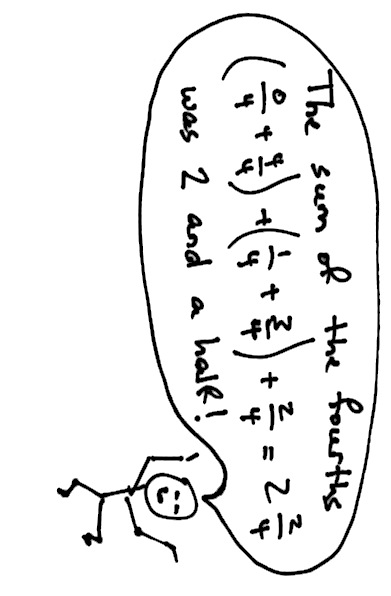 The sum of the fourths
(0/4 + 4/4) + (1/4 + 3/4) + 2/4 = 2 2/4
was 2 and a half!